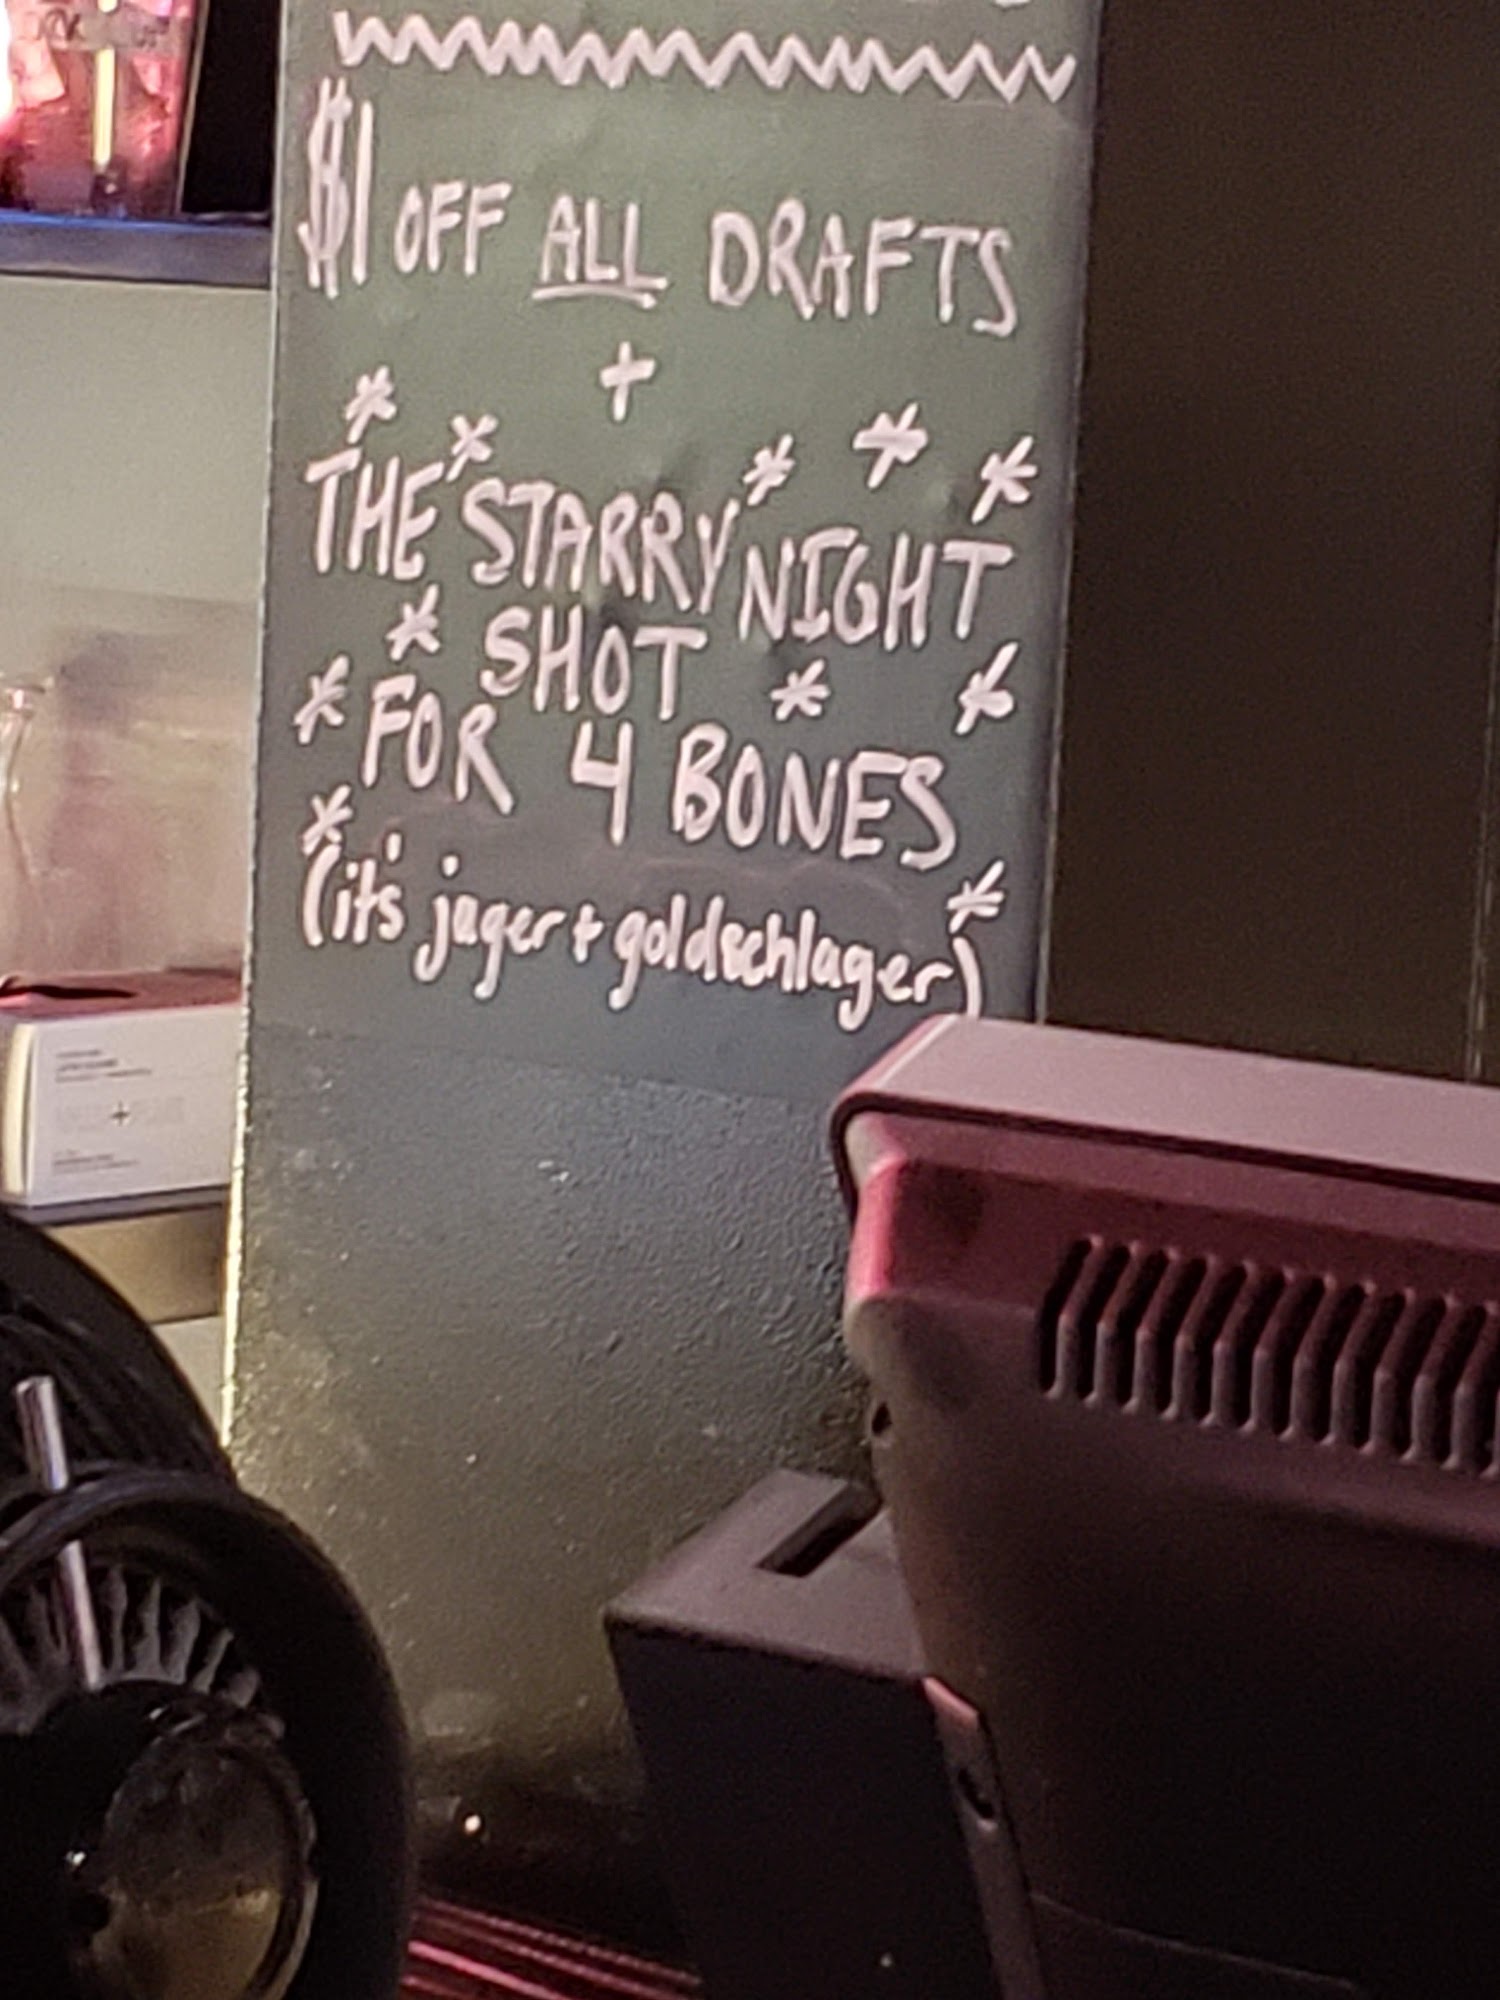 $1 OFF ALL DRAFTS
+
THE STARRY NIGHT
SHOT
FOR 4 BONES
(it's jager + goldschlager)